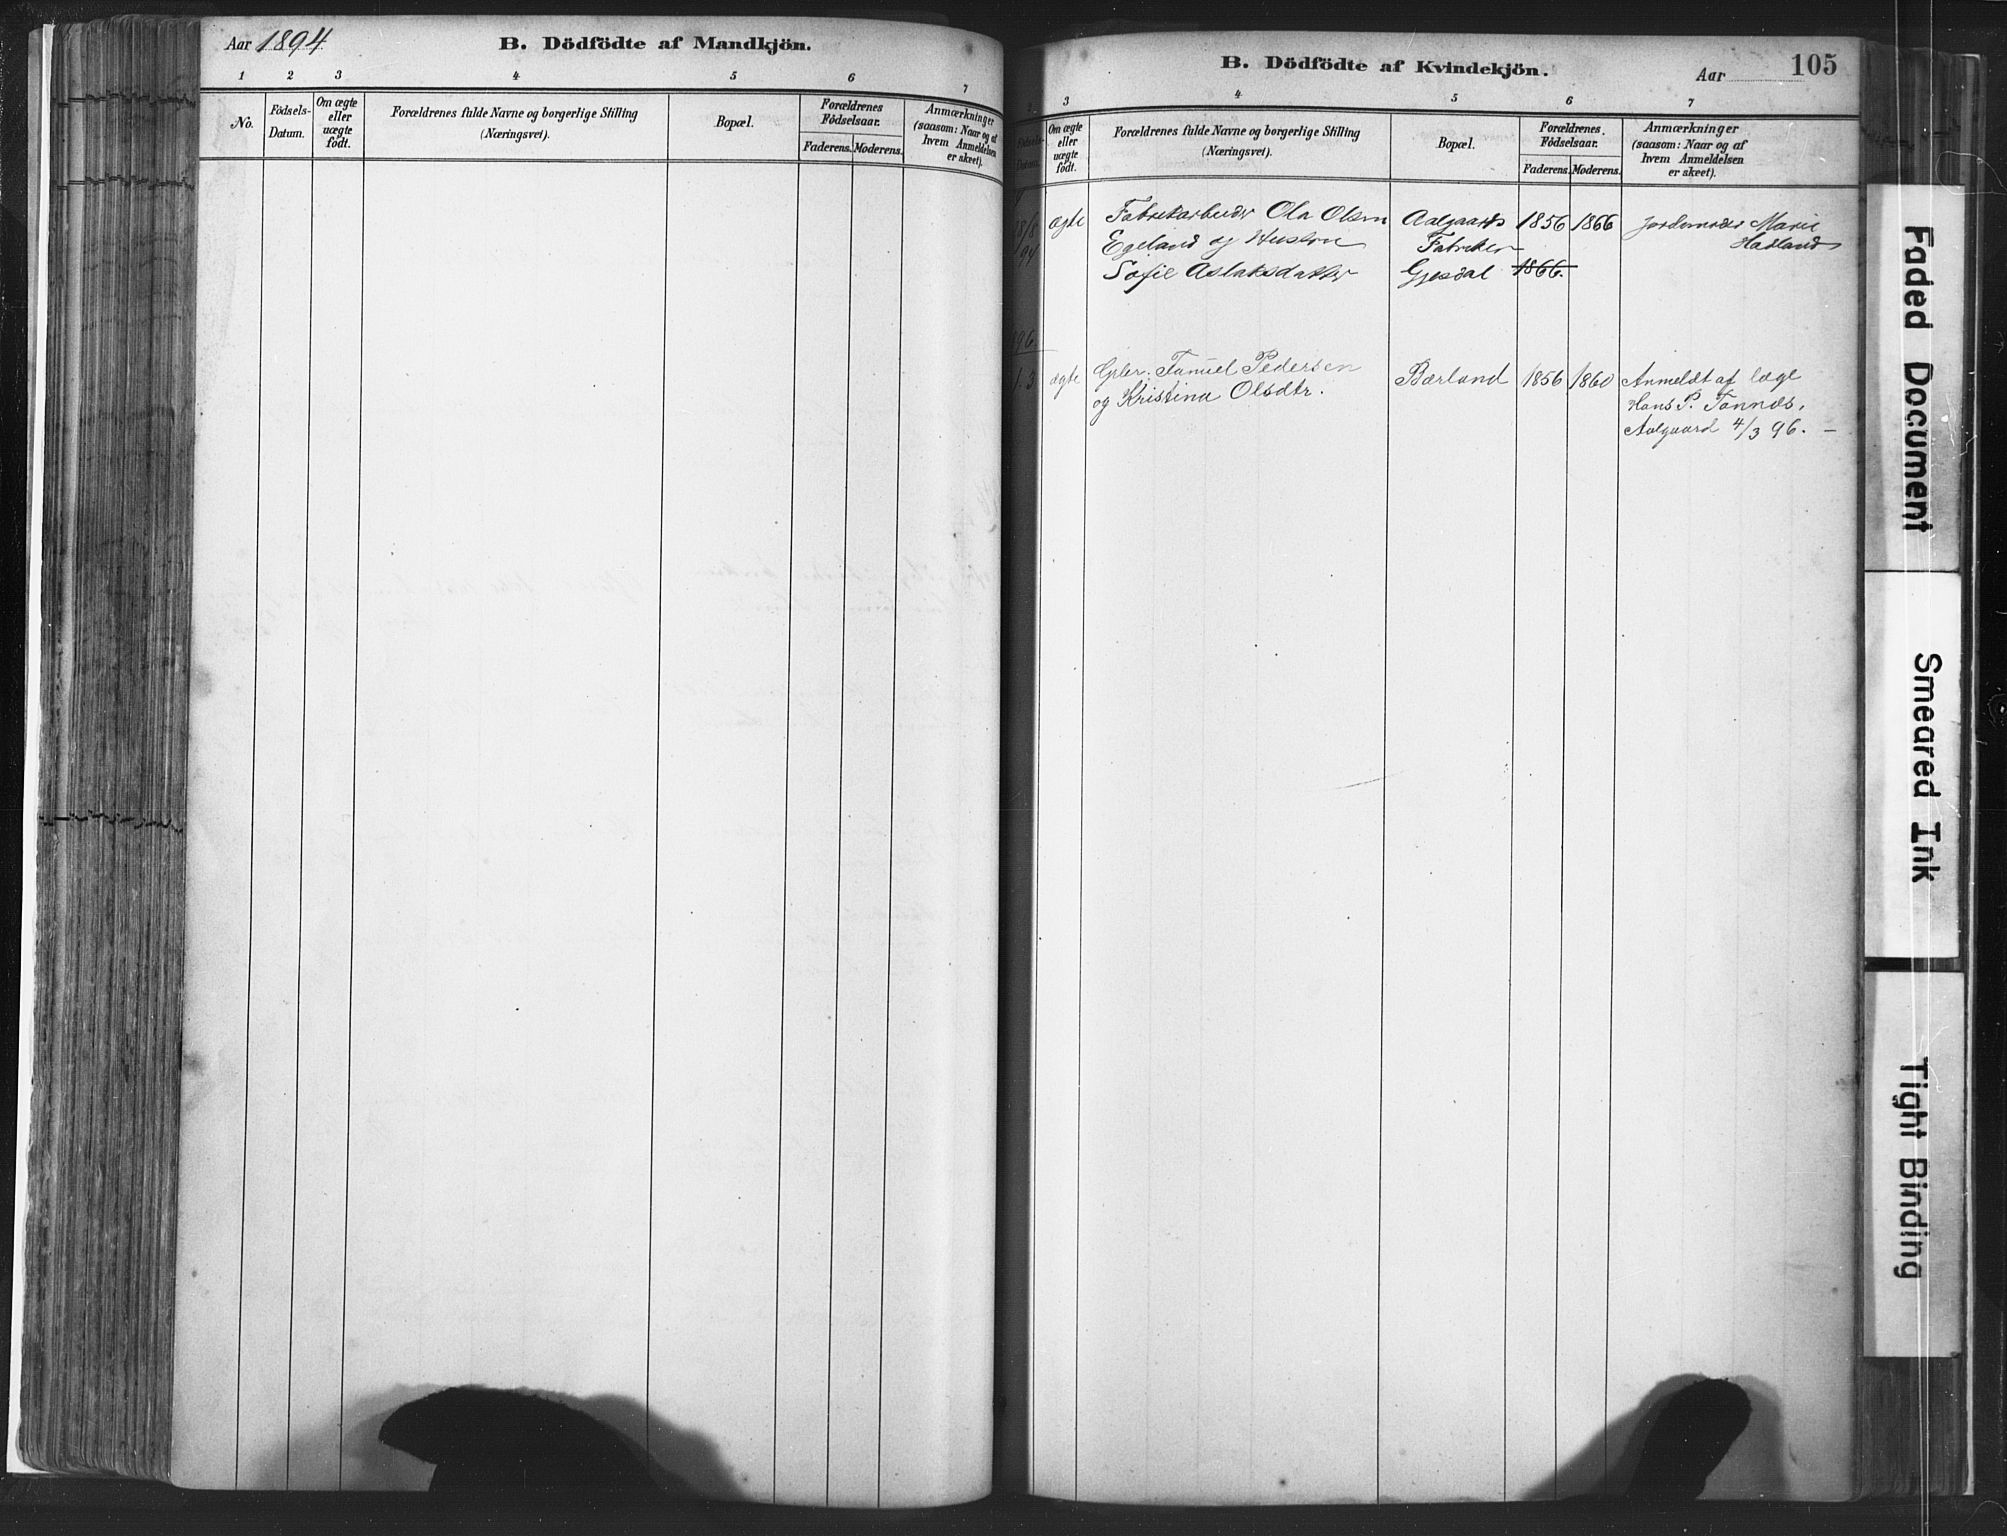 Aar 1894
B. Dödfödte af Mandkjön.
1 2 3 4 5 6 7
No.
Födsels-
Datum.
Om ægte
eller
uægte
födt.
Forældrenes fulde Navne og borgerlige Stilling
(Næringsvei).
Bopæl.
Forældrenes
Födselsaar.
Faderens. Moderens.
Anmærkninger
(saasom: Naar og af
hvem Anmeldelsen
er skeet).
B. Dödfödte af Kvindekjön.
Aar
105
3 4 5 6 7
Födsels-
Datum.
Om ægte
eller
uægte
födt.
Forældrenes fulde Navne og borgerlige Stilling
(Næringsvei).
Bopæl.
Forældrenes
Födselsaar.
Faderens. Moderens.
Anmærkninger
(saasom: Naar og af
hvem Anmeldelsen
er skeet).
8/8 ægte Fabrikarbeider Ola Olsen Aalgaards 1856 1866 Jordemoder Marie
94 Egeland og Hustru Fabrikker Hadland
Sofie Aslaksdatter Gjesdal 1866.
96.
3 ægte Gbr. Tønnel Pedersen Bærland 1856 1860 Anmeldt af læge
og Kristina Olsdtr. Hans P. Tonnes,
Aalgaard 4/3 96. —
Faded Document
Smeared Ink
Tight Binding